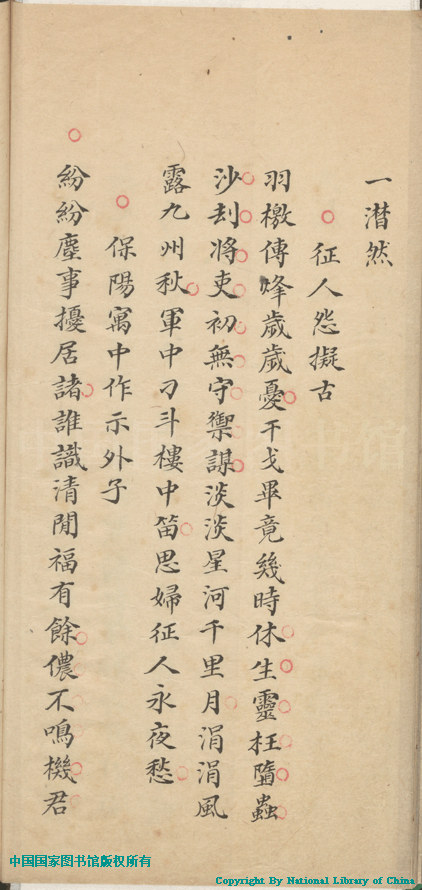 一潸然
征人怨擬古
羽檄傳烽歲歲憂干戈畢竟幾時休生靈枉墮蟲
沙刦將吏初無守禦謀淡淡星河千里月涓涓風
露九州秋軍中刁斗樓中笛思婦征人永夜愁
保陽寓中作示外子
紛紛塵事擾居諸誰識清閒福有餘儂不鳴機君
中国国家图书馆版权所有
Copyright By National Library of China